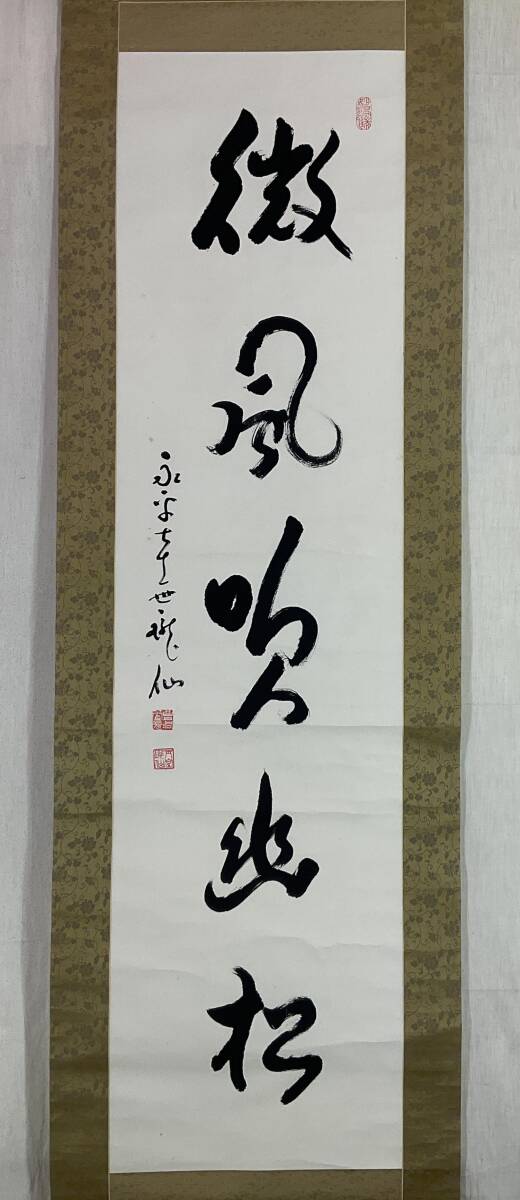 微風吹幽松
永平七十世瓏仙